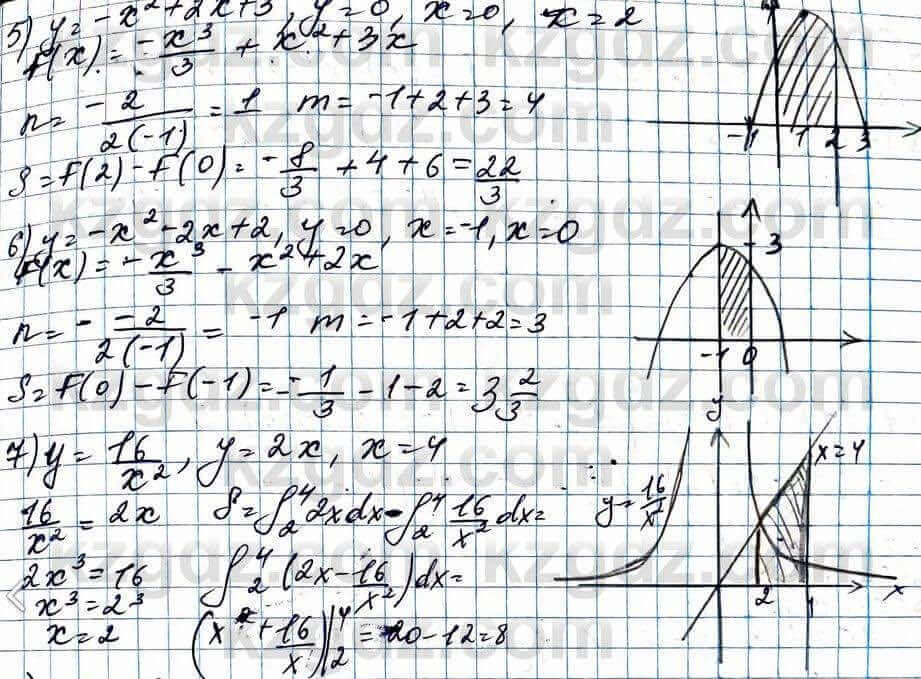 5) y = -x² + 2x + 3, y = 0, x = 0, x = 2
F(x) = -x³/3 + x² + 3x
n = - 2/2(-1) = 1 m = -1 + 2 + 3 = 4
S = F(2) - F(0) = -8/3 + 4 + 6 = 22/3
-1 1 2 3
6) y = -x² - 2x + 2, y = 0, x = -1, x = 0
F(x) = -x³/3 - x² + 2x
n = - -2/2(-1) = -1 m = -1 + 2 + 2 = 3
S = F(0) - F(-1) = -1/3 - 1 - 2 = 3 2/3
3
-1 0
7) y = 16/x², y = 2x, x = 4
16/x² = 2x S = ∫₂⁴ 2x dx - ∫₂⁴ 16/x² dx =
2x³ = 16 ∫₂⁴ (2x - 16/x²) dx =
x³ = 2³
x = 2 (x² + 16/x)|₂⁴ = 20 - 12 = 8
y
x = 4
y = 16/x²
2 x
kzgdz.com